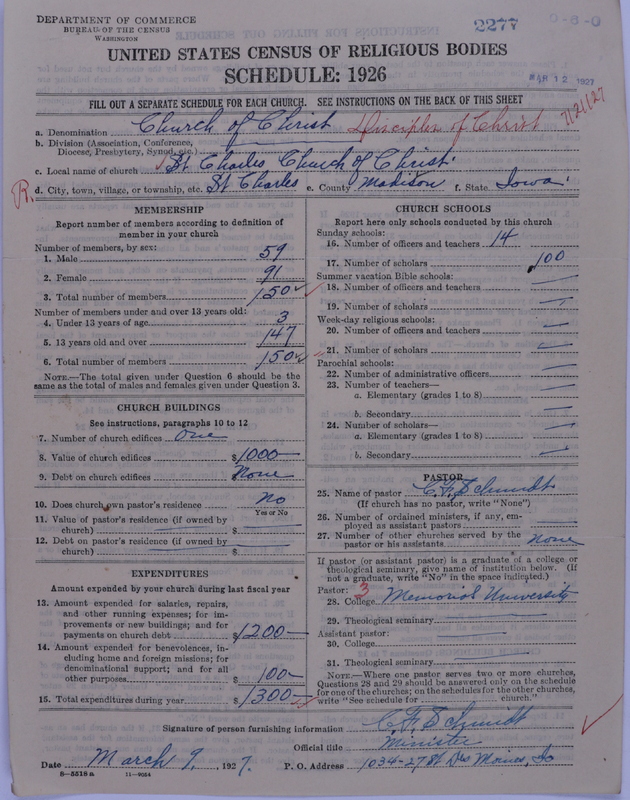 DEPARTMENT OF COMMERCE
BUREAU OF THE CENSUS
WASHINGTON
2277
0-6-0
UNITED STATES CENSUS OF RELIGIOUS BODIES
SCHEDULE: 1926
MAR 12 1927
FILL OUT A SEPARATE SCHEDULE FOR EACH CHURCH. SEE INSTRUCTIONS ON THE BACK OF THIS SHEET
7/21/27
a. Denomination Church of Christ Disciples of Christ
b. Division (Association, Conference, Diocese, Presbytery, Synod, etc.)
c. Local name of church St Charles Church of Christ
R. d. City, town, village, or township, etc. St Charles e. County Madison f. State Iowa
MEMBERSHIP
Report number of members according to definition of
member in your church
Number of members, by sex:
1. Male 59
2. Female 91
3. Total number of members 150
Number of members under and over 13 years old:
4. Under 13 years of age 3
5. 13 years old and over 147
6. Total number of members 150
NOTE.—The total given under Question 6 should be
same as the total of males and females given under Question 3.
CHURCH BUILDINGS
See instructions, paragraphs 10 to 12
7. Number of church edifices One
8. Value of church edifices $1000—
9. Debt on church edifices $ None
10. Does church own pastor's residence No
Yes or No
11. Value of pastor's residence (if owned by
church) $
12. Debt on pastor's residence (if owned by
church) $
EXPENDITURES
Amount expended by your church during last fiscal year
13. Amount expended for salaries, repairs,
and other running expenses; for im-
provements or new buildings; and for
payments on church debt $1200—
14. Amount expended for benevolences, in-
cluding home and foreign missions; for
denominational support; and for all
other purposes $ 100—
15. Total expenditures during year $1300—
CHURCH SCHOOLS
Report here only schools conducted by this church
Sunday schools:
16. Number of officers and teachers 14
17. Number of scholars 100
Summer vacation Bible schools:
18. Number of officers and teachers —
19. Number of scholars —
Week-day religious schools:
20. Number of officers and teachers —
21. Number of scholars —
Parochial schools:
22. Number of administrative officers —
23. Number of teachers—
a. Elementary (grades 1 to 8) —
b. Secondary —
24. Number of scholars—
a. Elementary (grades 1 to 8) —
b. Secondary —
PASTOR
25. Name of pastor C. F. Schmidt
(If church has no pastor, write "None")
26. Number of ordained ministers, if any, em-
ployed as assistant pastors —
27. Number of other churches served by the
pastor or his assistants None
If pastor (or assistant pastor) is a graduate of a college or
theological seminary, give name of institution below. (If
not a graduate, write "No" in the space indicated.)
Pastor: 3
28. College Memorial University
29. Theological seminary
Assistant pastor:
30. College
31. Theological seminary
NOTE.—Where one pastor serves two or more churches,
Questions 28 and 29 should be answered only on the schedule
for one of the churches; on the schedules for the other churches,
write "See schedule for church."
Signature of person furnishing information C. F. Schmidt
Official title Minister
Date March 9, 1927. P. O. Address 1034-27 St Des Moines, Io
8-5518 a 11-9054